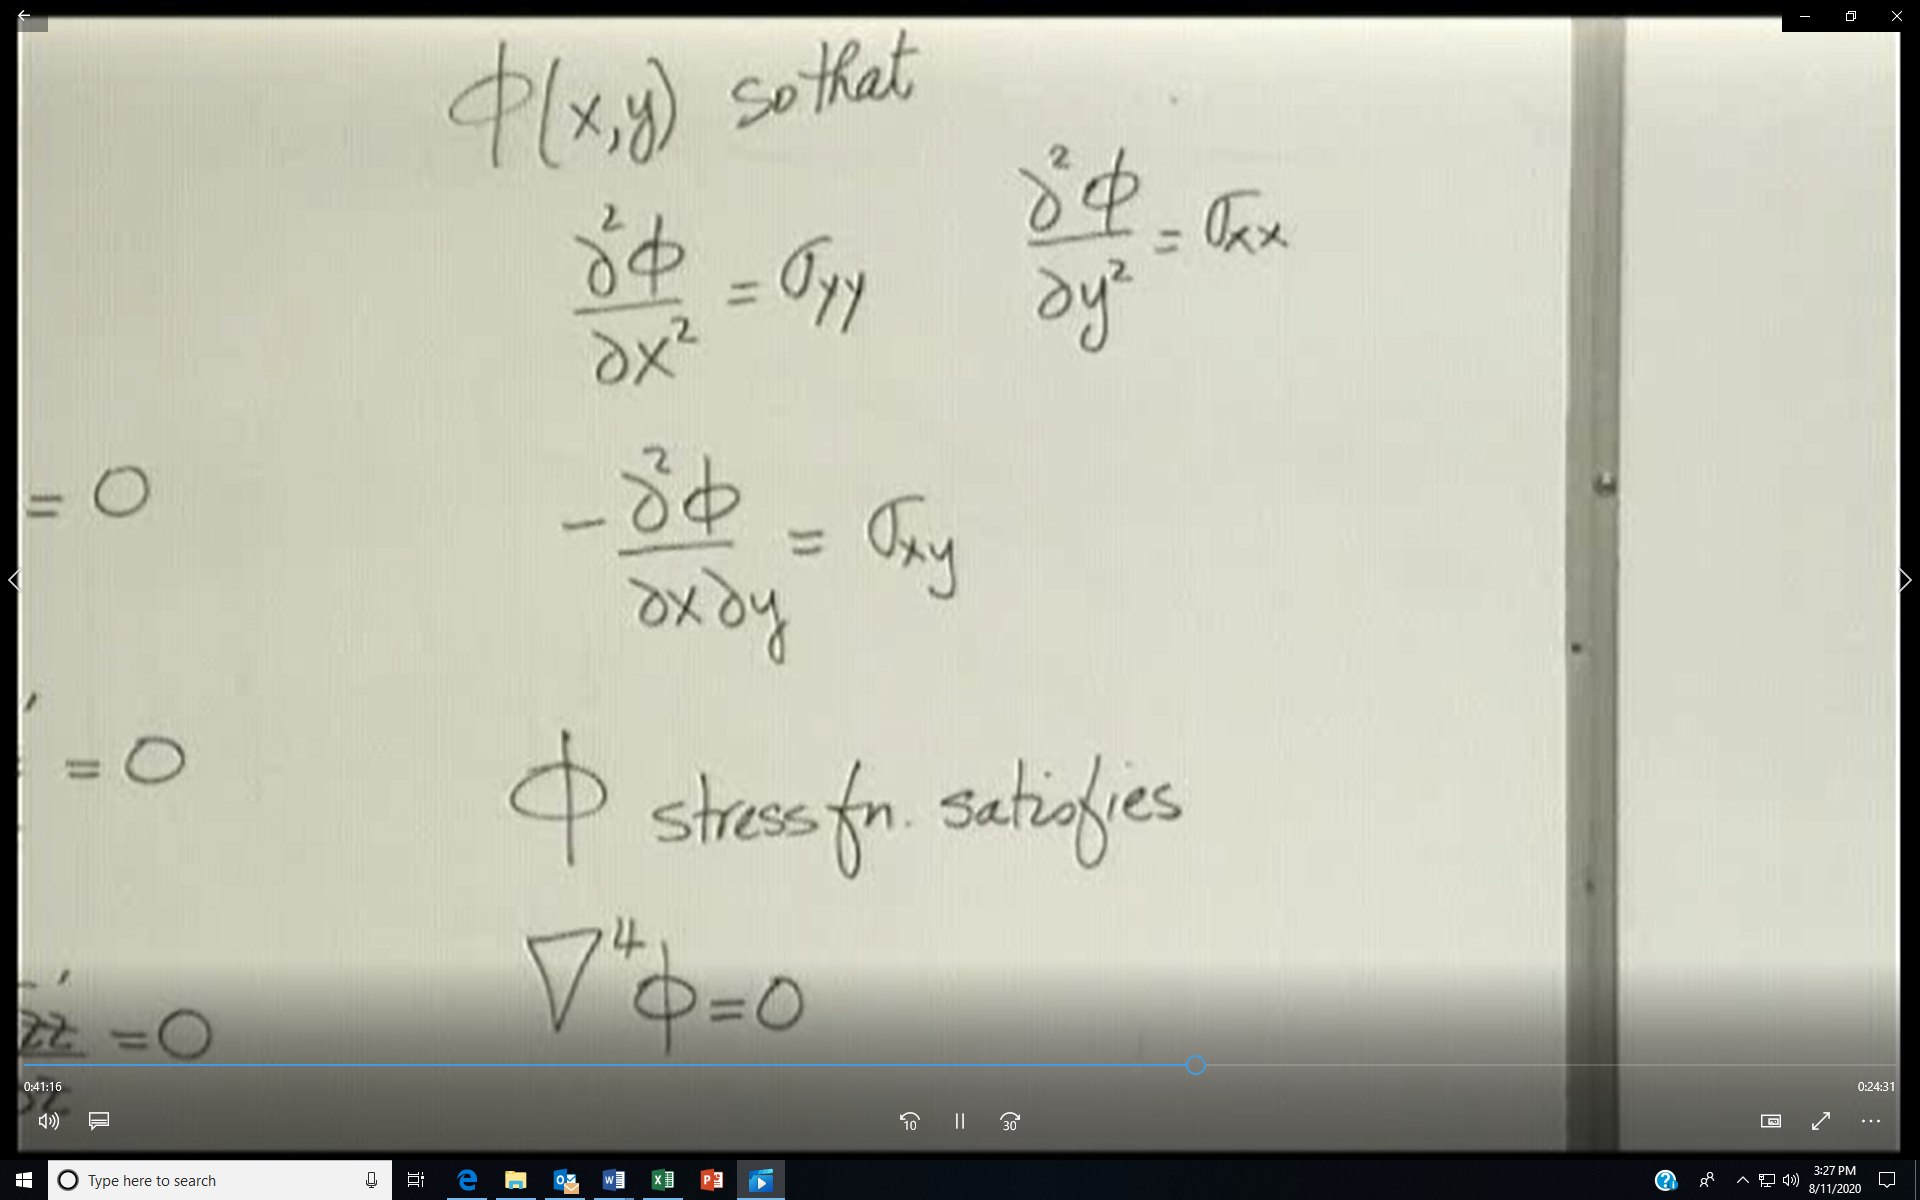 ϕ(x,y) so that
∂²ϕ/∂x² = σyy
∂²ϕ/∂y² = σxx
= 0
-∂²ϕ/∂x∂y = σxy
= 0
ϕ stress fn. satisfies
∇⁴ϕ=0
zz = 0
∂z
0:41:16
0:24:31
10
30
Type here to search
3:27 PM
8/11/2020